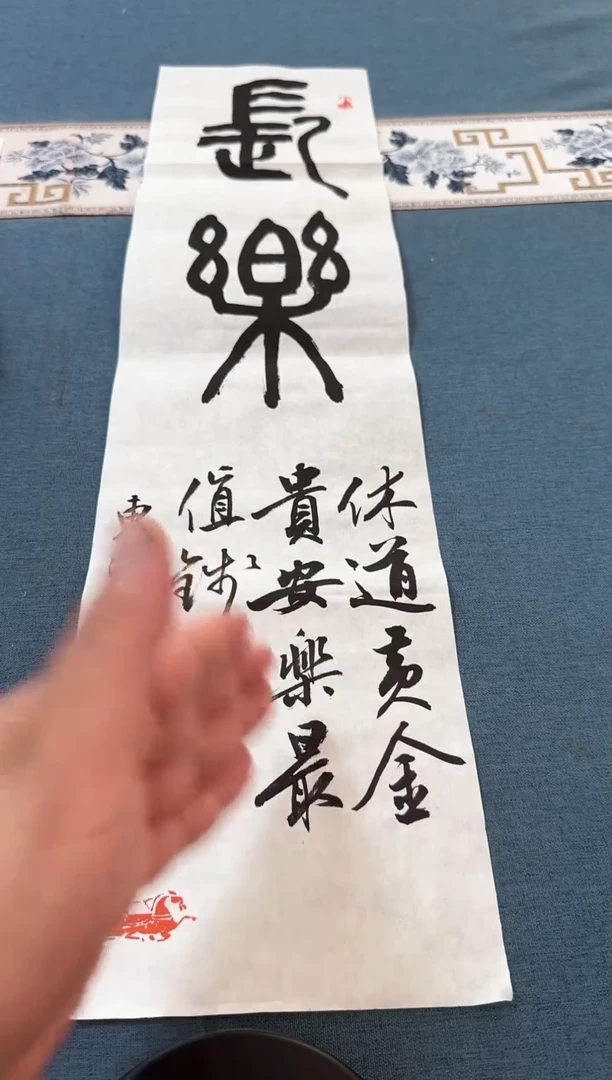 長樂
休道黄金
貴安樂最
值錢